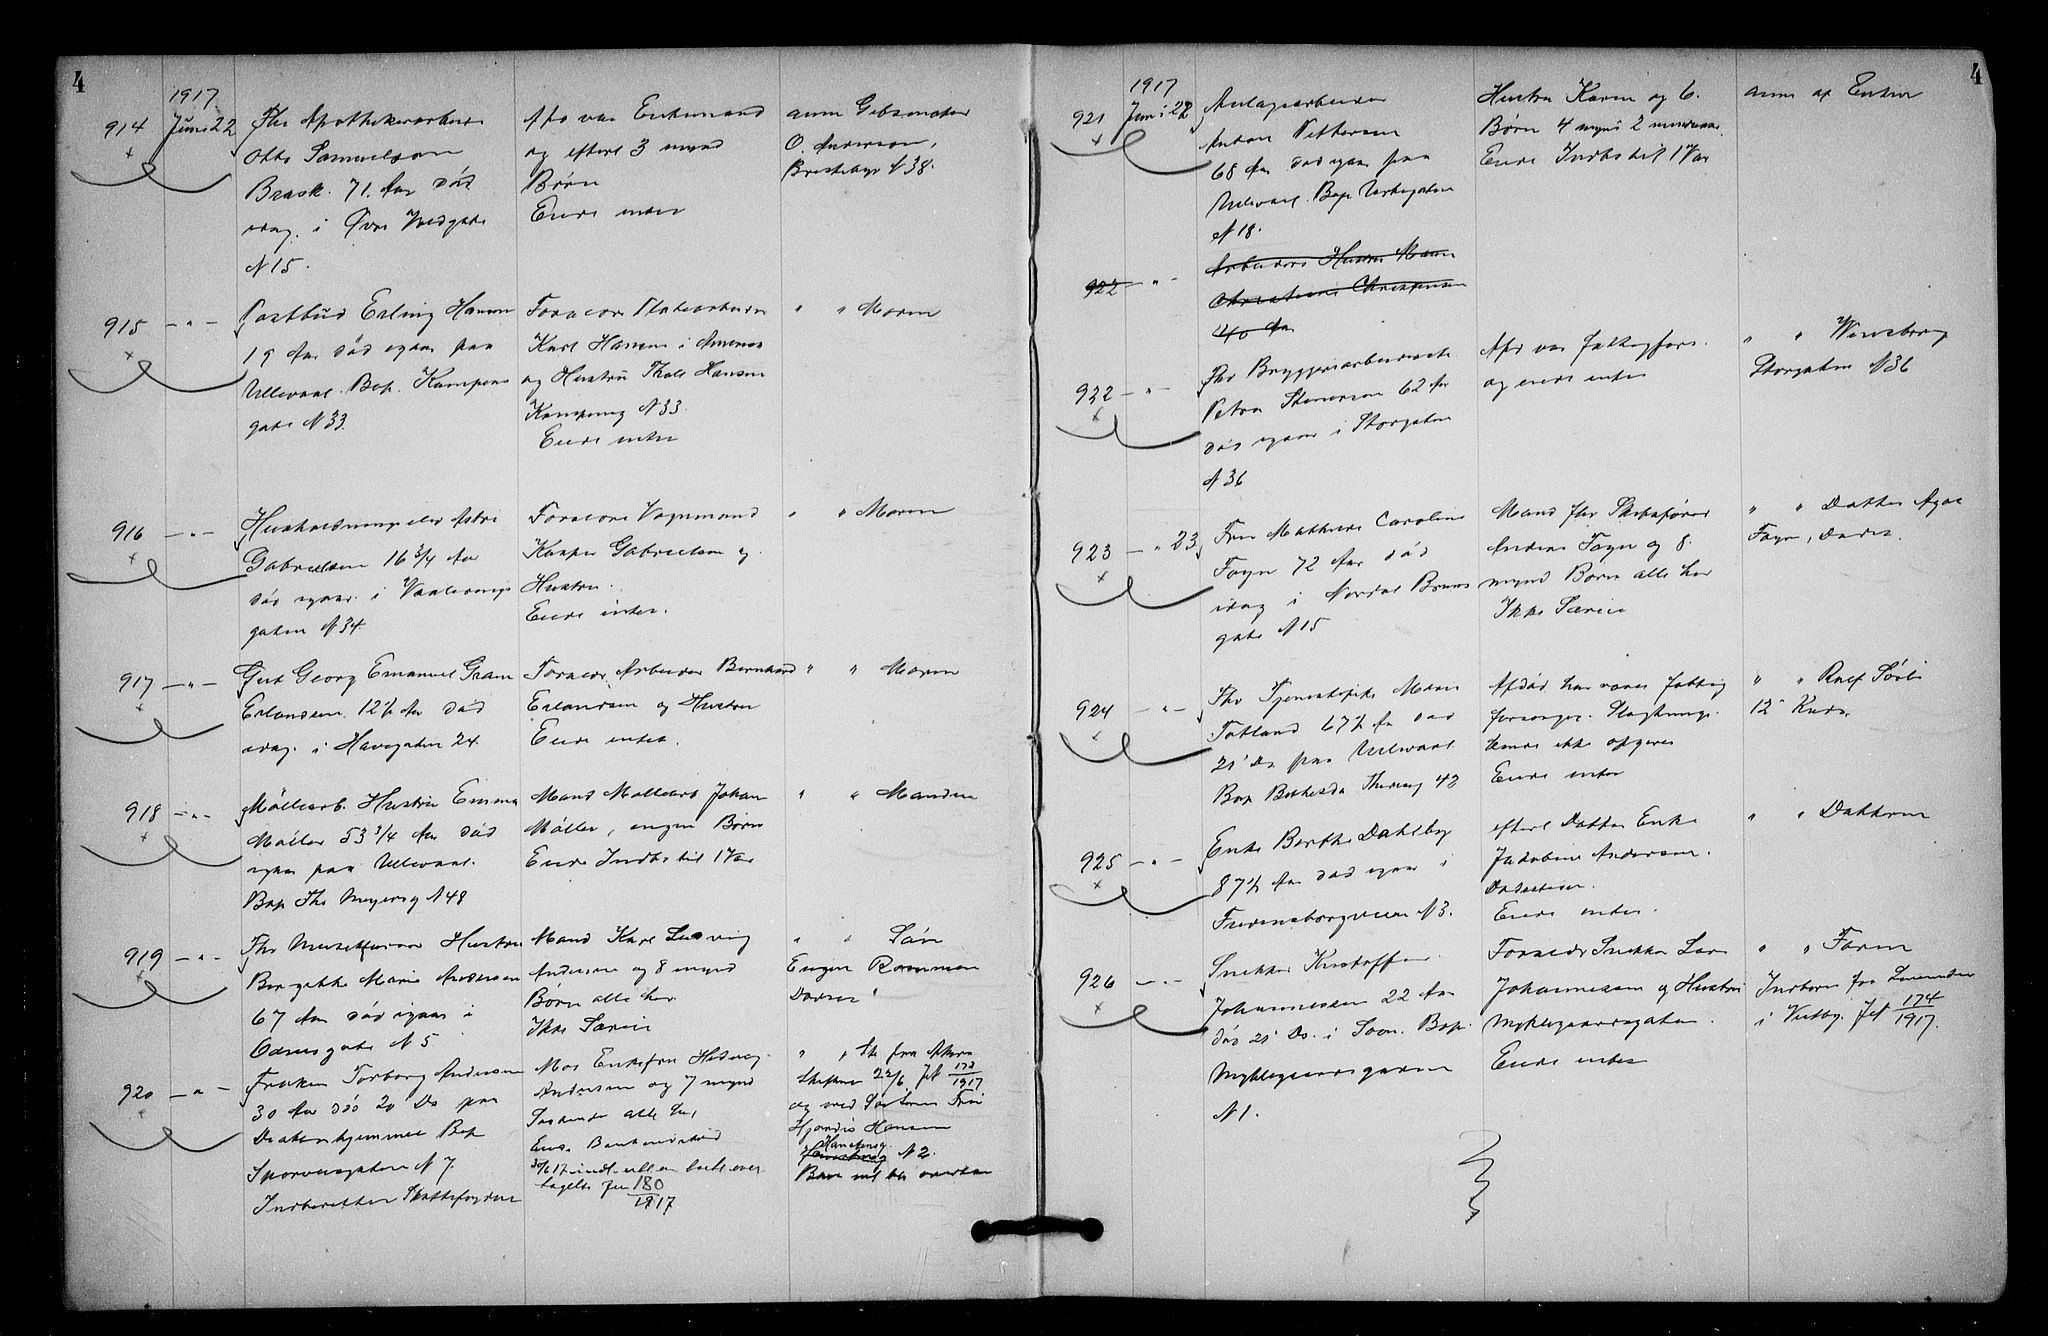 4
1917
914
Juni 22
Fhv Apothekerarbeider
Otto Samuelson
Brask. 71. Aar død
idag. i Øvre
N 15.
Afd var Enkemand
og efterl 3 mynd
Børn
Eiede intet
anm Gibsmaker
O. Anderson,
N 38.
915 — " —
Postbud Erling Hansen
19 Aar død igaar paa
Ullevaal. Bop. Kampens
gate N 33.
Forældre
Karl Hansen i Amerika
og Hustru Hansen
Kampensg N 33.
Eiede intet
" " Moren
916 — " —
Husholdningselev Astri
Gabrielsen 16 3/4 Aar
død igaar. i Vaalerengs
gaten N 34.
Forældre Vognmand
Kasper Gabrielsen og
Hustru.
Eiede intet.
" " Moren
917 — " —
Gut Georg Emanuel Gram
Erlandsen. 12 1/2 Aar død
idag. i Havegaten 24.
Forældr. Arbeider Bernhard
Erlandsen og Hustru
Eiede intet.
" " Moren
918 — " —
Møllearb. Hustru Emma
Møller 53 3/4 Aar død
igaar paa Ullevaal.
Bop Ths Meyersg N 48
Mand Møllearb Johan
Møller, ingen Børn
Eiede Indbo til 1 Vær
" " Manden
919 — " —
Fhv Hustru
Marie Andersen
67 Aar død igaar i
Odinsgate N 5
Mand Karl Ludvig
Andersen og 8 mynd
Børn alle her
Ikke Særeie
" " Søn
Einar
920 — " —
Frøken Torborg Andersen
30 Aar død 20 Ds paa
Diakonhjemmet Bop
Sporveisgaten N 7.
Indberetter Skattefogden
Mor Enkefru Hedvig
Andersen og 7 mynd
Søskende alle her,
30/6 17 indl. erkl om boets over
tagelse Jnr 180
1917
" " Sk fra Akers
Skifteret 22/6 Jnl 173
1917
og ved Søsteren Fru
Hjørdis Hansen
Hansteensg. N 2.
Boet vil bli overtat
4
1917
921
Juni 22
Anlægsarbeider
Anton Pettersen
68 Aar død igaar paa
Ullevaal. Bop
N 18.
Hustru Karen og 6.
Børn 4 mynd 2 mindreaar.
Eiede Indbo til 1 Vær
anm af Enken
922 — " —
Arbeiders Hustru Maren
Christiane Christensen
40 Aar
922 — " —
Fhv Bryggeriarbeiderske
Petra Stenersen 62 Aar
død igaar i Storgaten
N 36
Afd var fattigfors.
og eiede intet
" " Winsborg
Storgaten N 36
923 — " 23
Fru Mathilde Caroline
Fogn 72 Aar død
idag i Nordal Bruns
gate N 15
Mand fhv Skibsfører
Anders Fogn og 8.
mynd Børn alle her
Ikke Særeie
" " Datter
Fogn,
924 — " —
Fhv Tjenestepike Maren
Totland 67 1/2 Aar død
21' Ds paa Ullevaal
Bop Bethesda Thereseg 43
Afdød har været fattig
forsørget. Slægtninge
kunde ikke opgives
Eiede intet
" "
925 — " —
Enke Berthe Dahlby
87 1/2 Aar død igaar i
Fredensborgveien N 3.
efterl Datter Enke
Jakobine Andersen.
Eiede intet.
" " Datteren
926 — " —
Snekker Kristoffer
Johannessen 22 Aar
død 21' Ds. i Soon. Bop.
Myklegaardsgaten
N 1.
Forældr Snekker Lars
Johannessen og Hustru
Myklegaardsgaten.
Eiede intet
" " Faren
Indberu. fra Lensmanden
i Vestby. Jnl 174
1917.